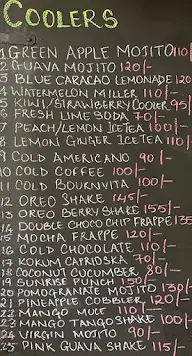 COOLERS
1 GREEN APPLE MOJITO 110/-
2 GUAVA MOJITO 120/-
3 BLUE CARACAO LEMONADE 120
4 WATERMELON MILLER 110/-
5 KIWI/STRAWBERRY COOLER 95/
6 FRESH LIME SODA 70/-
7 PEACH/LEMON ICETEA 100/-
8 LEMON GINGER ICETEA 110/-
9 COLD AMERICANO 90/-
10 COLD COFFEE 100/-
11 COLD BOURNVITA 100/-
12 OREO SHAKE 145/-
13 OREO BERRY SHAKE 155/-
14 DOUBLE CHOCO CHIP FRAPPE 135
15 MOCHA FRAPPE 120/-
16 COLD CHOCOLATE 110/-
17 KOKUM CAPRIOSKA 70/-
18 COCONUT CUCUMBER 80/-
19 SUNRISE PUNCH 150/-
20 POMOGRANATE MOJITO 130/-
21 PINEAPPLE COBBLER 120/-
22 MANGO MULE 110/-
23 MANGO TANGO SHAKE 100/-
24 VIRGIN MOJITO 90/-
25 PINK GUAVA SHAKE 115/-